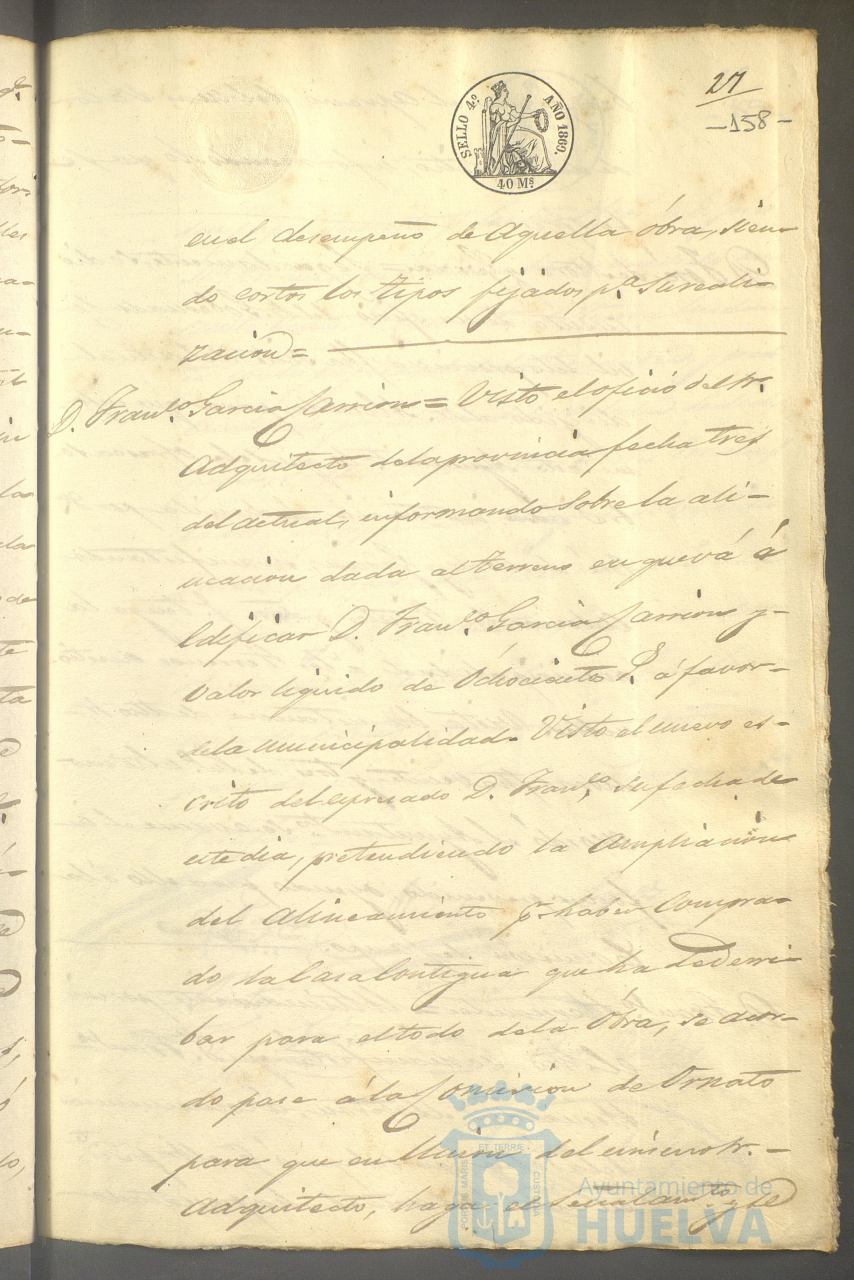 27
-158-
SELLO 4.º AÑO 1869.
40 Mˢ
en el desempeño de Aquella óbra, sien-
do cortos los tipos fijados pª. su reali-
zacion=
D. Franᶜᵒ. Garcia Carrion = Visto el oficio del Sr.
Adquitecto de la provincia fecha tres
del actual, informando sobre la ali-
neacion dada al terreno en que vá á
Edificar D. Franᶜᵒ. Garcia Carrion y-
valor liquido de Ochociento à favor-
de la municipalidad. Visto el nuevo es-
crito del espresado D. Franᶜᵒ. su fecha de
este dia, pretendiendo la Ampliacion
del Alineamiento pʳ. haber Compra-
do la Casa Contigua que ha de derri-
bar para el todo de la Obra, se acor-
do pase á la Comision de Ornato
para que en Union del mismo Sr.-
Adquitecto, haga el Señalamᵗᵒ. y se
PORTUS MARIS ET TERRÆ CUSTODIA
Ayuntamiento de
HUELVA